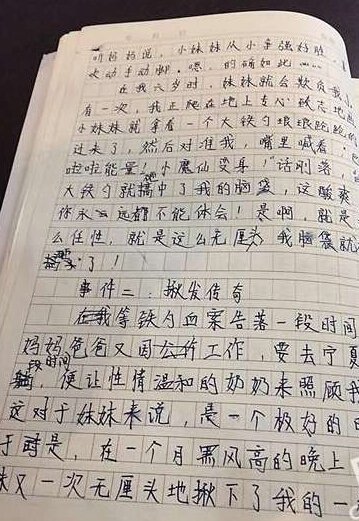 听妈妈说，小妹妹从小争强好胜，
吹动手动脚。嗯，的确如此……
在我六岁时，妹妹就会欺负我
有一次，我正爬在地上专心致志地
小妹妹就拿着一个大铁勺踉踉跄跄
过来了，然后对准我，嘴里喊着，
啦啦能量！小魔仙变身！”话刚落，
大铁勺就搞中了我的脑袋，这酸爽
你永远都不能体会！是啊，就是
么任性，就是这么无厘头，我脑袋就
了！
事件二：揪发传奇
在我等铁勺血案告落一段时间
妈妈爸爸又因公的工作，要去宁夏
段时间，便让性情温和的奶奶来照顾我
这对于妹妹来说，是一个极好的
于是，在一个月黑风高的晚上
妹又一次无厘头地揪下了我的一